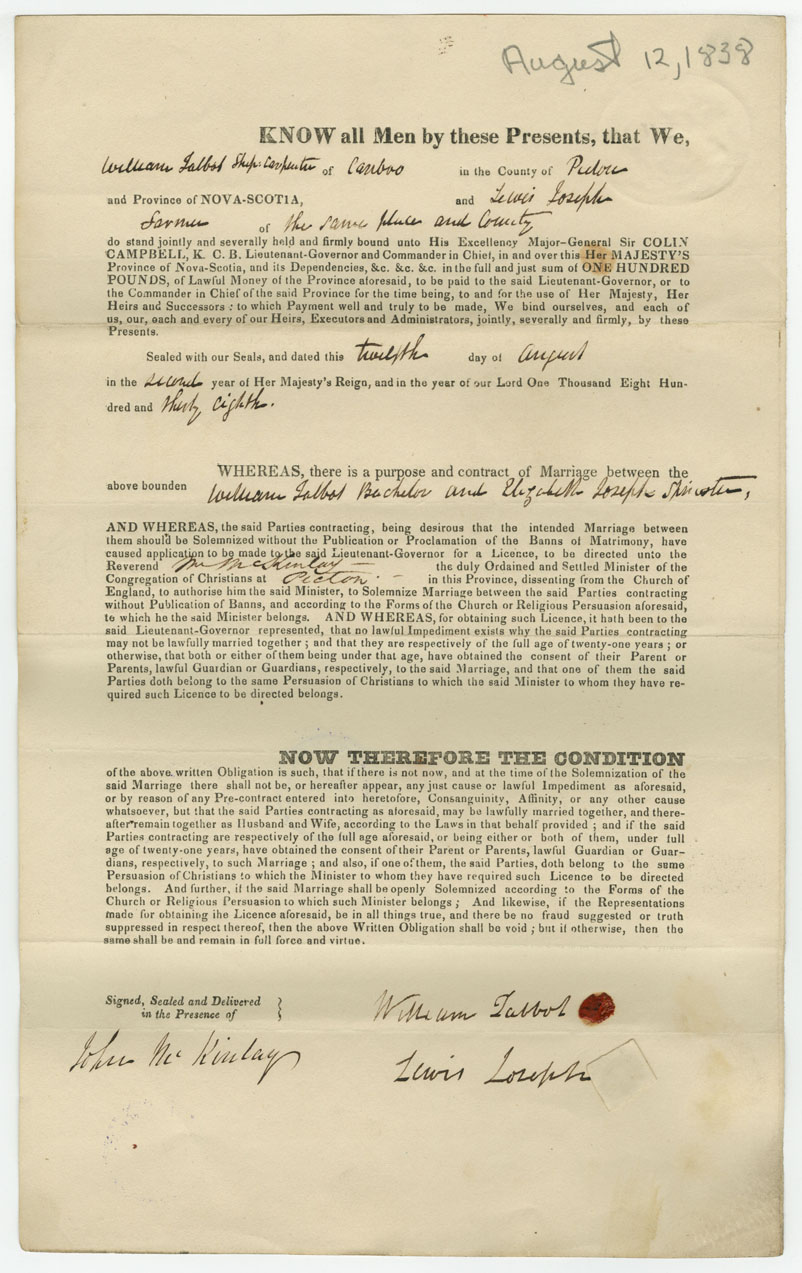 August 12, 1838
KNOW all Men by these Presents, that We,
William Talbot Ship: Carpenter of Cariboo in the County of Pictou
and Province of NOVA-SCOTIA, and Lewis Joseph
Farmer of the same place and County
do stand jointly and severally held and firmly bound unto His Excellency Major-General Sir COLIN
CAMPBELL, K. C. B. Lieutenant-Governor and Commander in Chief, in and over this Her MAJESTY'S
Province of Nova-Scotia, and its Dependencies, &c. &c. &c. in the full and just sum of ONE HUNDRED
POUNDS, of Lawful Money of the Province aforesaid, to be paid to the said Lieutenant-Governor, or to
the Commander in Chief of the said Province for the time being, to and for the use of Her Majesty, Her
Heirs and Successors : to which Payment well and truly to be made, We bind ourselves, and each of
us, our, each and every of our Heirs, Executors and Administrators, jointly, severally and firmly, by these
Presents.
Sealed with our Seals, and dated this twelfth day of August
in the second year of Her Majesty's Reign, and in the year of our Lord One Thousand Eight Hun-
dred and thirty eighth.
WHEREAS, there is a purpose and contract of Marriage between the
above bounden William Talbot Bachelor and Elizabeth Joseph Spinster,
AND WHEREAS, the said Parties contracting, being desirous that the intended Marriage between
them should be Solemnized without the Publication or Proclamation of the Banns of Matrimony, have
caused application to be made to the said Lieutenant-Governor for a Licence, to be directed unto the
Reverend Mr McKinlay the duly Ordained and Settled Minister of the
Congregation of Christians at Picton - in this Province, dissenting from the Church of
England, to authorise him the said Minister, to Solemnize Marriage between the said Parties contracting
without Publication of Banns, and according to the Forms of the Church or Religious Persuasion aforesaid,
to which he the said Minister belongs. AND WHEREAS, for obtaining such Licence, it hath been to the
said Lieutenant-Governor represented, that no lawful Impediment exists why the said Parties contracting
may not be lawfully married together ; and that they are respectively of the full age of twenty-one years ; or
otherwise, that both or either of them being under that age, have obtained the consent of their Parent or
Parents, lawful Guardian or Guardians, respectively, to the said Marriage, and that one of them the said
Parties doth belong to the same Persuasion of Christians to which the said Minister to whom they have re-
quired such Licence to be directed belongs.
NOW THEREFORE THE CONDITION
of the above written Obligation is such, that if there is not now, and at the time of the Solemnization of the
said Marriage there shall not be, or hereafter appear, any just cause or lawful Impediment as aforesaid,
or by reason of any Pre-contract entered into heretofore, Consanguinity, Affinity, or any other cause
whatsoever, but that the said Parties contracting as aforesaid, may be lawfully married together, and there-
after remain together as Husband and Wife, according to the Laws in that behalf provided ; and if the said
Parties contracting are respectively of the full age aforesaid, or being either or both of them, under full
age of twenty-one years, have obtained the consent of their Parent or Parents, lawful Guardian or Guar-
dians, respectively, to such Marriage ; and also, if one of them, the said Parties, doth belong to the same
Persuasion of Christians to which the Minister to whom they have required such Licence to be directed
belongs. And further, if the said Marriage shall be openly Solemnized according to the Forms of the
Church or Religious Persuasion to which such Minister belongs ; And likewise, if the Representations
made for obtaining the Licence aforesaid, be in all things true, and there be no fraud suggested or truth
suppressed in respect thereof, then the above Written Obligation shall be void ; but if otherwise, then the
same shall be and remain in full force and virtue.
Signed, Sealed and Delivered
in the Presence of
William Talbot
John McKinlay
Lewis Joseph